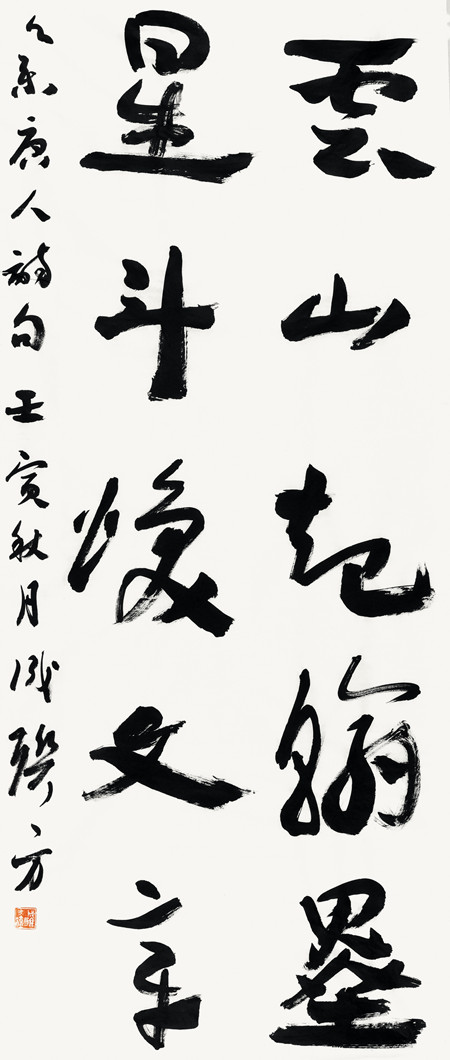 雲山起翰墨
星斗煥文章
集唐人詩句壬寅秋月